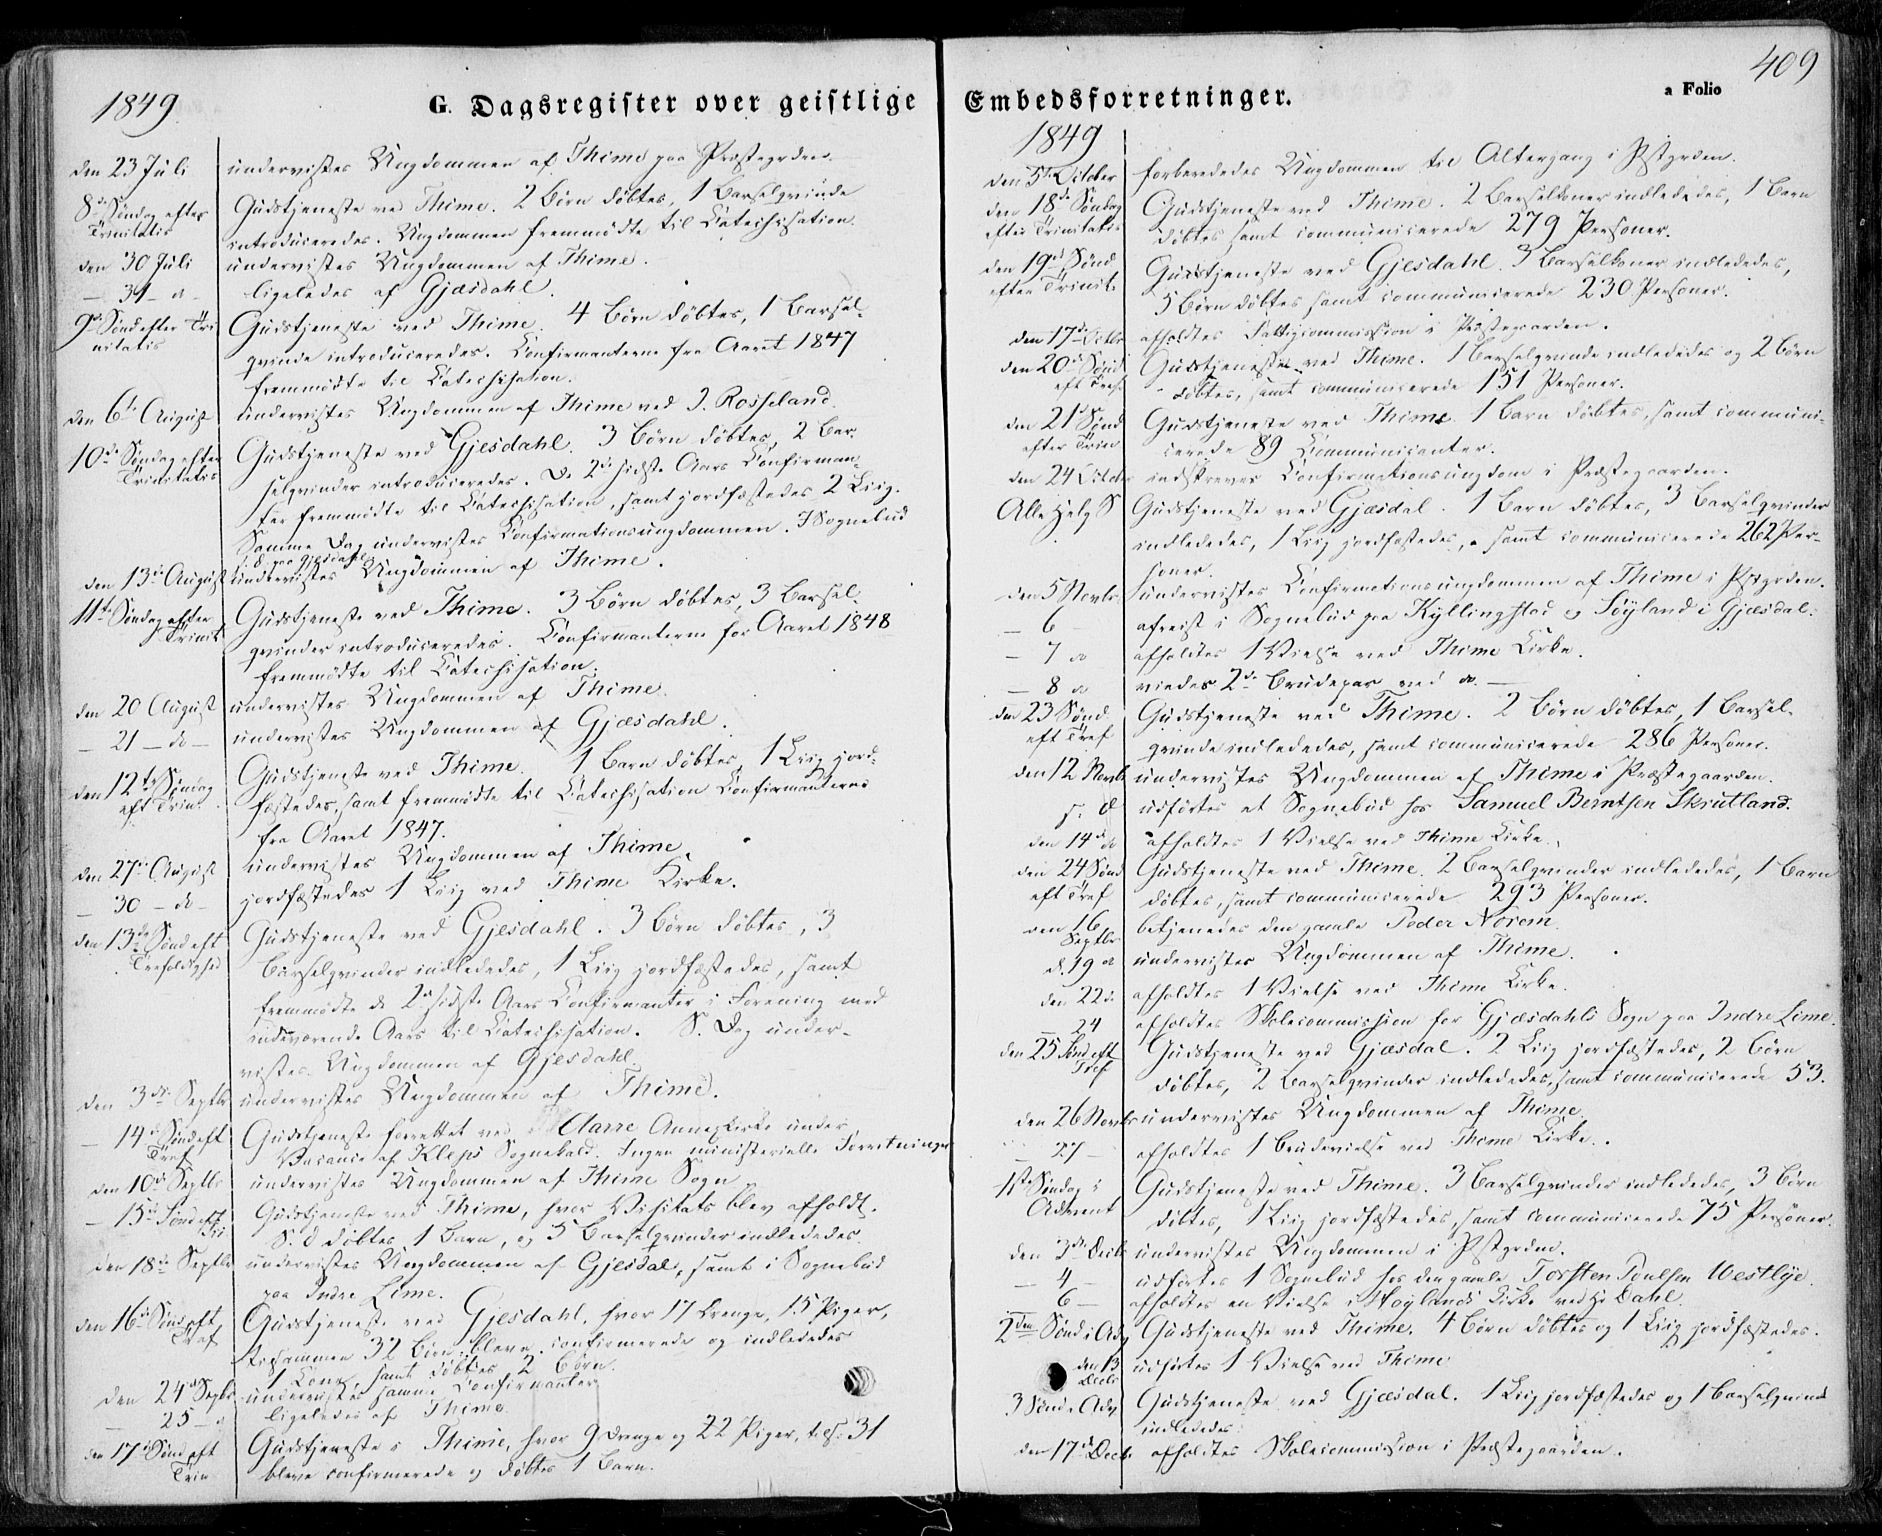 1849
G. Dagsregister over geistlige
den 23 Juli undervistes Ungdommen af Thime paa Præstegrden.
8de Søndag efter Trinitatis Gudstjeneste ved Thime. 2 Børn døbtes, 1 Barselqvinde
introduceredes. Ungdommen fremmødte til Catechisation.
den 30 Juli undervistes Ungdommen af Thime.
— 31 — d — ligeledes af Gjæsdahl.
9de Sønd efter Trinitatis Gudstjeneste ved Thime. 4 Børn døbtes, 1 Barsel-
qvinde introduceredes. Confirmanterne fra Aaret 1847
fremmødte til Catechisation.
den 6te August undervistes Ungdommen af Thime ved J. Rosseland.
10de Søndag efter Trinitatis Gudstjeneste ved Gjesdahl. 3 Børn døbtes, 2 Bar-
selqvinder introduceredes. De 2de sidste Aars Confirman-
ter fremmødte til Catechisation, samt jordfæstedes 2 Liig.
Samme Dag undervistes Confirmationsungdommen. I Sognebud
s. D. paa Gjesdahl.
den 13de August undervistes Ungdommen af Thime.
11te Søndag efter Trinit Gudstjeneste ved Thime. 3 Børn døbtes, 3 Barsel-
qvinder introduceredes. Confirmanterne for Aaret 1848
fremmødte til Catechisation.
den 20 August undervistes Ungdommen af Thime.
— 21 — do — undervistes Ungdommen af Gjæsdahl.
den 12te Søndag eft Trin. Gudstjeneste ved Thime. 1 Barn døbtes, 1 Liig jord-
fæstedes, samt fremmødte til Catechisation Confirmanterne
fra Aaret 1847.
den 27de August undervistes Ungdommen af Thime.
— 30 — do — jordfæstedes 1 Liig ved Thime Kirke.
den 13de Sønd eft Trefoldighed Gudstjeneste ved Gjesdahl. 3 Børn døbtes, 3
Barselqvinder indlededes, 1 Liig jordfæstedes, samt
fremmødte de 2de sidste Aars Confirmanter i Forening med
indeværende Aars til Catechisation. S. Dag under-
vistes Ungdommen af Gjesdahl.
den 3die Septbr undervistes Ungdommen af Thime.
— 14de Sønd eft Tref Gudstjeneste forrettet ved Aarre Annexkirke under
Vacance af Klepp Sognekald. Ingen ministerielle Forretninger
den 10de Septbr undervistes Ungdommen af Thime Sogn
— 15de Sønd eft Tri Gudstjeneste ved Thime, hvor Visitats blev afholdt.
S. d døbtes 1 Barn, og 3 Barselqvinder indlededes.
den 18de Septbr undervistes Ungdommen af Gjesdal, samt i Sognebud
paa Indre Lime.
den 16de Sønd eft Tref Gudstjeneste ved Gjesdahl, hvor 17 Drenge, 15 Piger,
tilsammen 32 Børn bleve confirmerede og indlededes
1 Kone, samt døbtes 2 Børn.
den 24de Septbr undervistes samme Confirmanter
— 25 — d ligeledes af Thime.
den 17de Sønd eft Trin Gudstjeneste i Thime, hvor 9 Drenge og 22 Piger, tils. 31
bleve confirmerede og døbtes 1 Barn.
409
Embedsforretninger.
a Folio
1849
den 5te October forberededes Ungdommen til Altergang i Pstgrden.
den 18de Søndag efter Trinitatis Gudstjeneste ved Thime. 2 Barselkoner indlededes, 1 Barn
døbtes samt communicerede 279 Personer.
den 19de Sønd efter Trinit. Gudstjeneste ved Gjesdahl. 3 Barselkoner indlededes,
5 Børn døbtes samt communicerede 230 Personer.
den 17de Octbr afholdtes Fattigcommission i Præstegaarden.
den 20de Sønd eft Tref. Gudstjeneste ved Thime. 1 Barselqvinde indlededes og 2 Børn
døbtes, samt communicerede 151 Personer.
den 21de Sønd efter Trin Gudstjeneste ved Thime. 1 Barn døbtes, samt communi-
cerede 89 Communicanter.
den 24 Octobr indskreves Confirmationsungdom i Præstegaarden.
Alle Helg S Gudstjeneste ved Gjæsdal. 1 Barn døbtes, 3 Barselqvinder
indlededes, 1 Liig jordfæstedes, samt communicerede 262 Per-
soner.
den 5 Novbr. undervistes Confirmationsungdommen af Thime i Pstgrden.
— 6 — afreist i Sognebud paa Kyllingstad og Søyland i Gjæsdal.
— 7 d afholdtes 1 Vielse ved Thime Kirke.
— 8 d viedes 2de Brudepar ved do. —
den 23 Sønd eft Tref Gudstjeneste ved Thime. 2 Børn døbtes, 1 Barsel-
qvinde indlededes, samt communicerede 286 Personer.
den 12 Novbr undervistes Ungdommen af Thime i Præstegaarden.
s. d udførtes et Sognebud hos Samuel Berntsen Skrutland.
den 14de do afholdtes 1 Vielse ved Thime Kirke.
den 24 Sønd eft Tref Gudstjeneste ved Thime. 2 Barselqvinder indlededes, 1 Barn
døbtes, samt communicerede 293 Personer.
den 16 Septbr betjenedes den gamle Peder Norem.
d. 19 d undervistes Ungdommen af Thime.
den 22de afholdtes 1 Vielse ved Thime Kirke.
— 24 afholdtes Skolecommission for Gjæsdahls Sogn paa Indre Lime.
den 25 Sønd eft Tref Gudstjeneste ved Gjæsdal. 2 Liig jordfæstedes, 2 Børn
døbtes, 2 Barselqvinder indlededes, samt communicerede 53.
den 26 Novbr undervistes Ungdommen af Thime.
— 27 — afholdtes 1 Brudevielse ved Thime Kirke.
1ste Søndag i Advent Gudstjeneste ved Thime. 3 Barselqvinder indlededes, 3 Børn
døbtes, 1 Liig jordfæstedes, samt communicerede 75 Personer.
den 3die Decbr undervistes Ungdommen i Pstgrden.
— 4 — udførtes 1 Sognebud hos den gamle Torsten Poulsen Westlye.
6 — afholdtes en Vielse i Høylands Kirke ved Hr Dahl.
2den Sønd i Adv Gudstjeneste ved Thime. 4 Børn døbtes og 1 Liig jordfæstedes.
den 13 Decbr udførtes 1 Vielse ved Thime
3 Sønd i Adv Gudstjeneste ved Gjæsdal. 1 Liig jordfæstedes og 1 Barselqvinde
indlededes.
den 17de Decb. afholdtes Skolecommission i Præstegaarden.